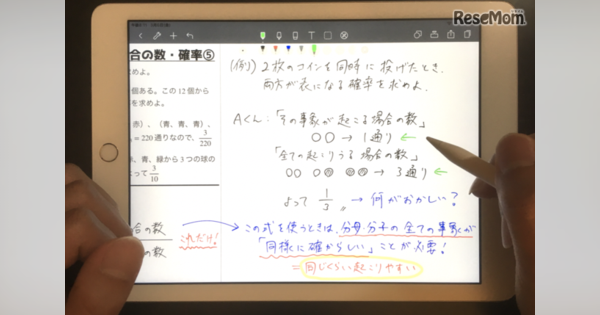 ReseMom
合の数・確率⑤
(例) 2枚のコインを同時に投げたとき、
両方が表になる確率を求めよ.
求めよ。
個ある。この12個から
を求めよ。
Aくん:「その事象が起こる場合の数」
○○→1通り←
赤)、(青、青、青)、
=220通りなので、3/220
「全ての起こりうる場合の数」
青、緑から3つの球の
って3/10
→3通り←
よって 1/3。→何がおかしい?
合の数
の数
これだけ!
この式を使うときは、分母・分子の全ての事象が
「同様に確からしい」ことが必要!
=同じくらい起こりやすい